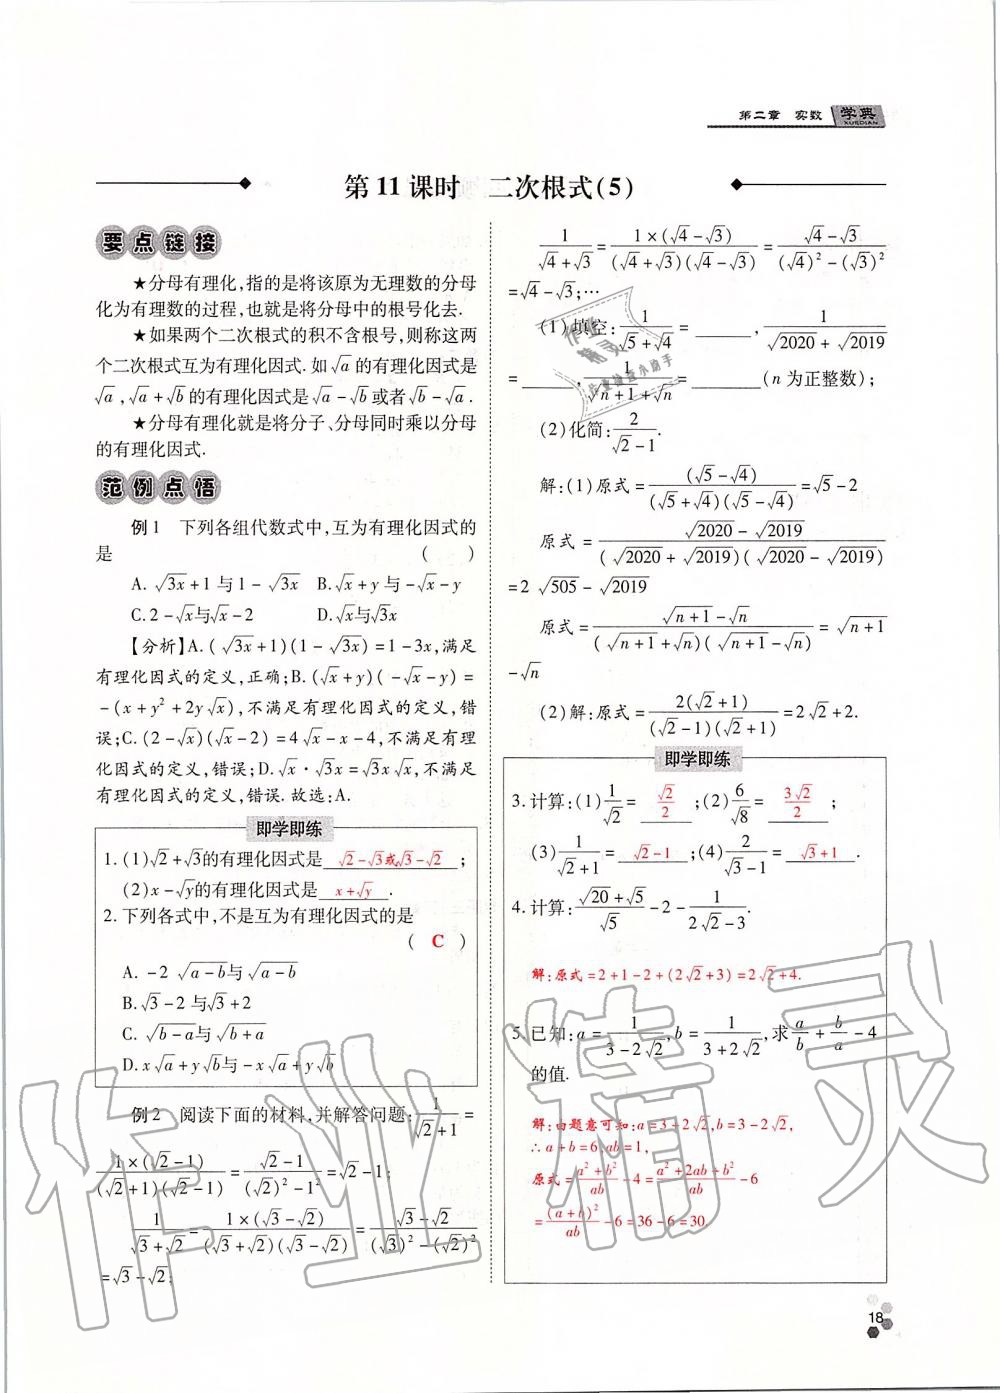 第二章 实数 学典
XUEDIAN
第 11 课时 二次根式(5)
要点链接
★分母有理化,指的是将该原为无理数的分母
化为有理数的过程,也就是将分母中的根号化去.
★如果两个二次根式的积不含根号,则称这两
个二次根式互为有理化因式.如√a的有理化因式是
√a,√a+√b的有理化因式是√a-√b或者√b-√a.
★分母有理化就是将分子、分母同时乘以分母
的有理化因式.
范例点悟
例1 下列各组代数式中,互为有理化因式的
是 ( )
A. √3x+1与1-√3x B.√x+y与-√x-y
C.2-√x与√x-2 D.√x与√3x
【分析】A.(√3x+1)(1-√3x)=1-3x,满足
有理化因式的定义,正确;B.(√x+y)(-√x-y)=
-(x+y²+2y√x),不满足有理化因式的定义,错
误;C.(2-√x)(√x-2)=4√x-x-4,不满足有理
化因式的定义,错误;D.√x·√3x=√3x√x,不满足
有理化因式的定义,错误.故选:A.
即学即练
1.(1)√2+√3的有理化因式是 √2-√3或√3-√2 ;
(2)x-√y的有理化因式是 x+√y .
2.下列各式中,不是互为有理化因式的是
( C )
A. -2√(a-b)与√(a-b)
B.√3-2与√3+2
C. √(b-a)与√(b+a)
D.x√a+y√b与-x√a+y√b
例2 阅读下面的材料,并解答问题:1/(√2+1)=
1×(√2-1)/((√2+1)(√2-1))=(√2-1)/((√2)²-1²)=√2-1;
1/(√3+√2)=1×(√3-√2)/((√3+√2)(√3-√2))=(√3-√2)/((√3)²-(√2)²)
=√3-√2;
1/(√4+√3)=1×(√4-√3)/((√4+√3)(√4-√3))=(√4-√3)/((√4)²-(√3)²)
=√4-√3;…
(1)填空:1/(√5+√4)=____,1/(√2020+√2019)
=____,1/(√(n+1)+√n)=____(n为正整数);
(2)化简:2/(√2-1).
解:(1)原式=(√5-√4)/((√5+√4)(√5-√4))=√5-2
原式=(√2020-√2019)/((√2020+√2019)(√2020-√2019))
=2√505-√2019
原式=(√(n+1)-√n)/((√(n+1)+√n)(√(n+1)-√n))=√(n+1)
-√n
(2)解:原式=2(√2+1)/((√2-1)(√2+1))=2√2+2.
即学即练
3.计算:(1)1/√2= √2/2 ;(2)6/√8= 3√2/2 ;
(3)1/(√2+1)= √2-1 ;(4)2/(√3-1)= √3+1 .
4.计算:(√20+√5)/√5-2-1/(2√2-3).
解:原式=2+1-2+(2√2+3)=2√2+4.
5.已知:a=1/(3-2√2),b=1/(3+2√2),求a/b+b/a-4
的值.
解:由题意可知:a=3+2√2,b=3-2√2,
∴a+b=6,ab=1,
原式=(a²+b²)/ab-4=(a²+2ab+b²)/ab-6
=(a+b)²/ab-6=36-6=30
18
作业精灵